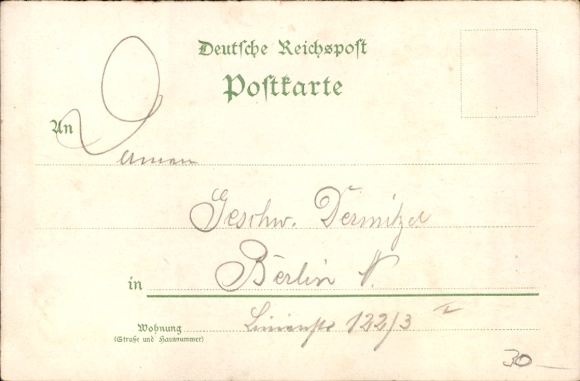 Deutsche Reichspost
Postkarte
An
Damen
Geschw. Dermitzel
in Berlin N.
Wohnung Linienstr 122/3 I
(Straße und Hausnummer)
30